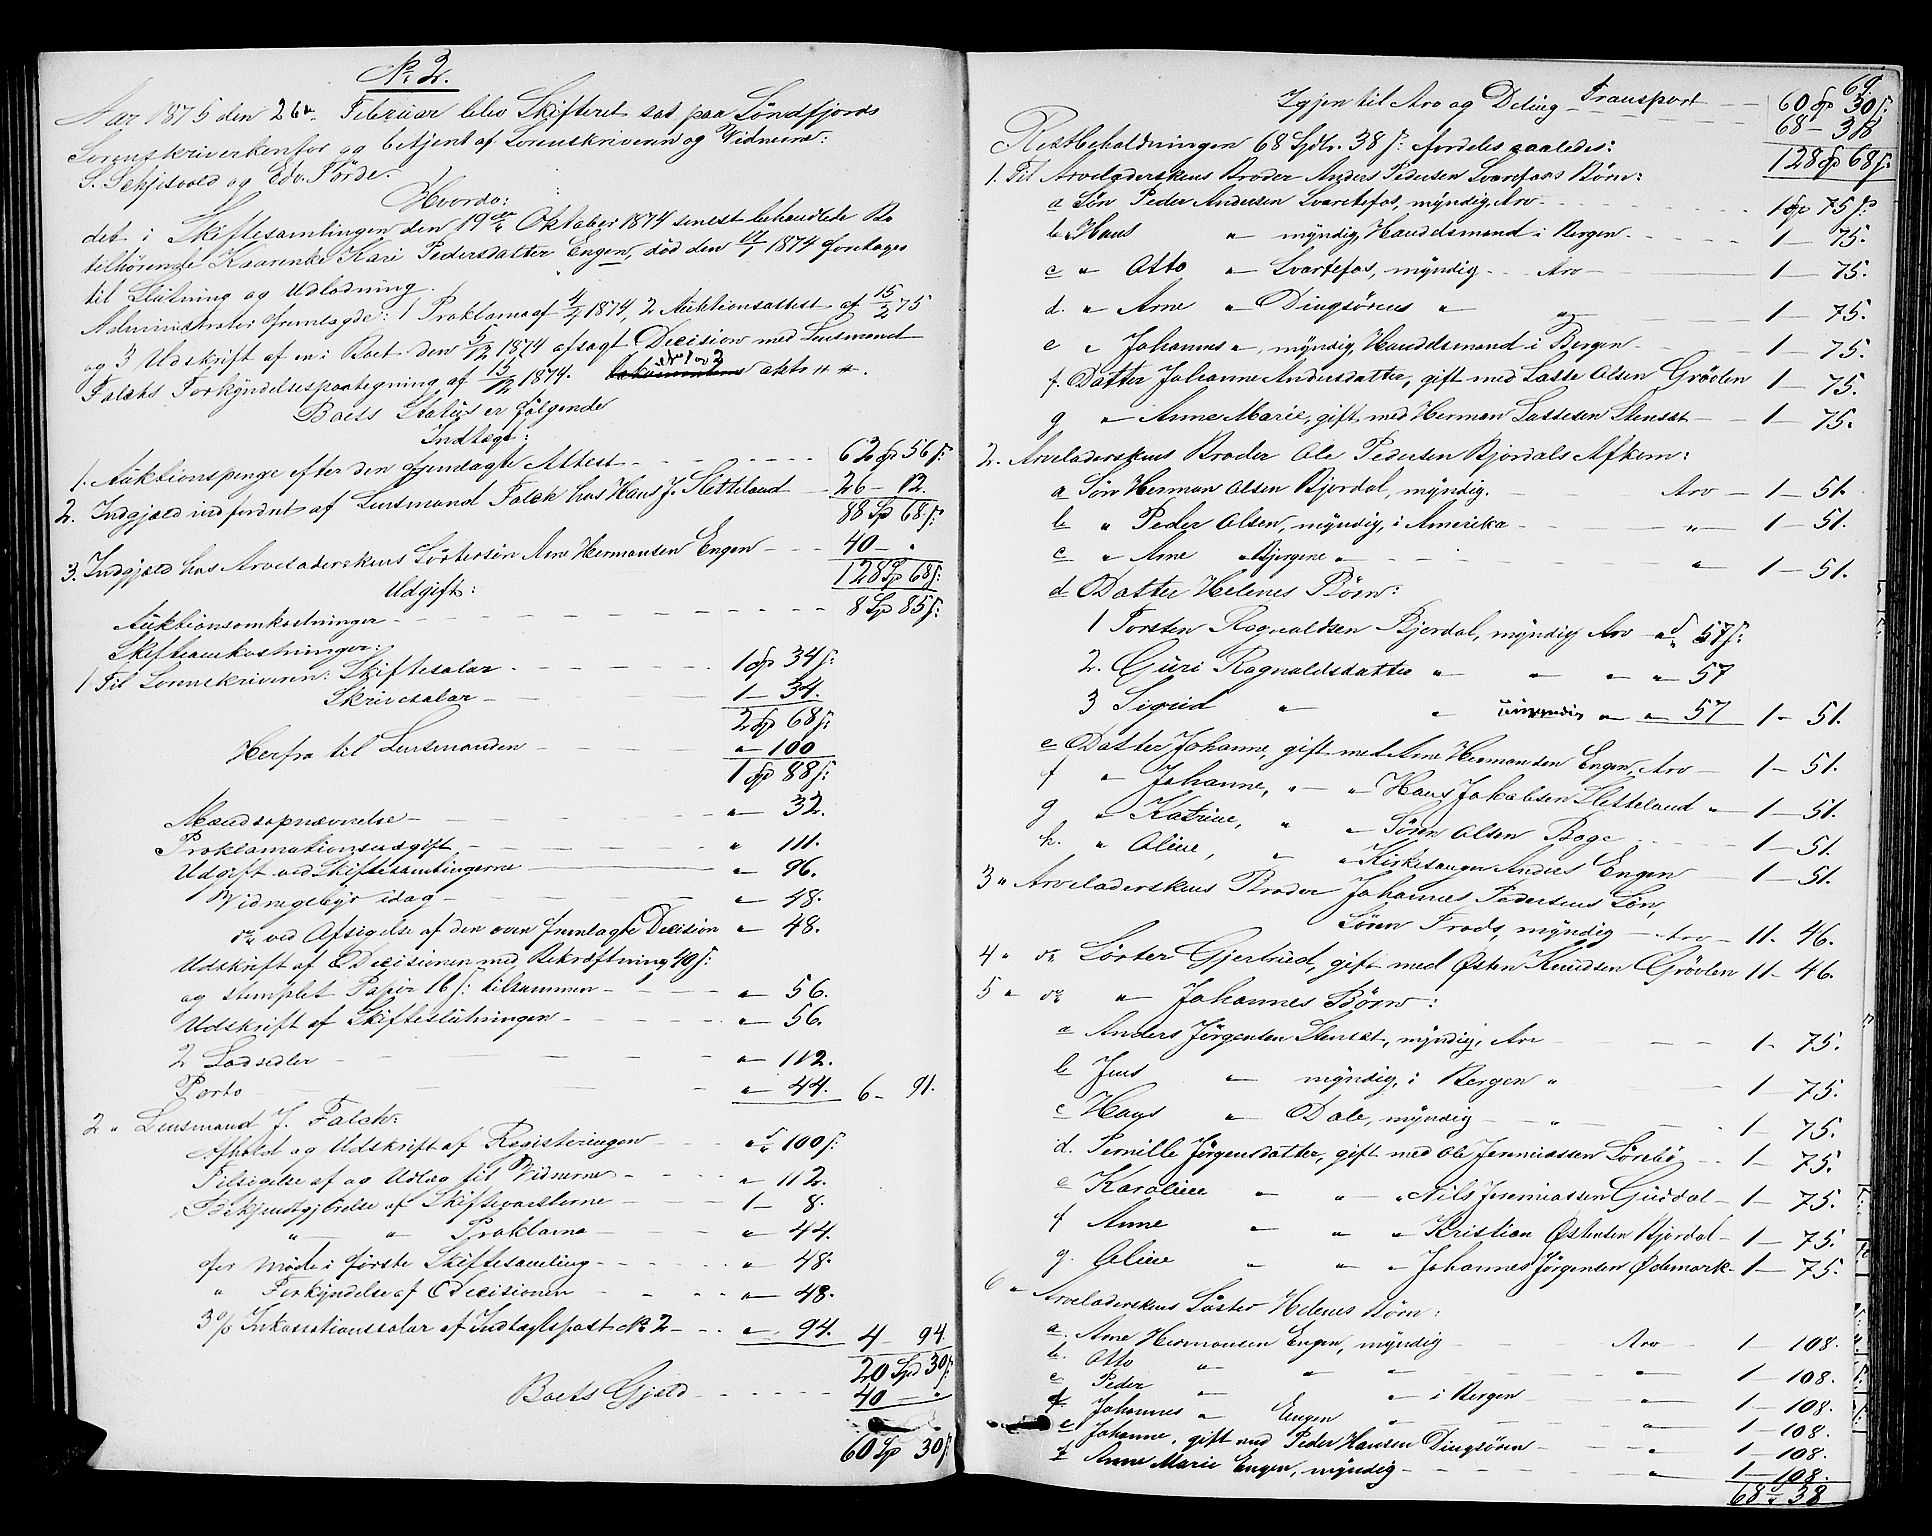 No 2.
Aar 1875 den 26de Februar blev Skifteret sat paa Söndfjords
Sorenskriverkontor og betjent af Sorenskriveren og Vidnerne:
S. Schjesvold og Edv. Förde.
Hvorda:
det i Skiftesamlingen den 19de Oktober 1874 senest behandlede Bo
tilhörende Kaarenke Kari Pedersdatter Engen, död den 1874 foretages
til Slutning og Udlodning.
Administrator fremlagde: 1 Proklama af 1874, 2 Auktionsattest af 15/2 75
og 3 Udskrift af en i Boet den 5/12 1874 afsagt Decision med Lensmand
Falchs Forkyndelsespaategning af 15/12 1874. akts
Boets Status er fölgende
Indtægt:
1. Auktionspenge efter den fremlagte Attest 62 Sp 56 s:
2. Indgjæld indfordret af Lensmand Falch hos Hans J. Sletteland 26 - 12.
88 Sp 68 s:
3. Indgjæld hos Arveladerskens Söstersön Arne Hermansen Engen 40 - "
128 Sp 68 s:
Udgift:
Auktionsomkostninger 8 Sp 85 s:
Skifteomkostninger:
1 Til Sorenskriveren: Skiftesalær 1 Sp 34 s:
Skrivesalær 1 - 34.
2 Sp 68 s:
Herfra til Lensmanden " 100
1 Sp 88 s:
Mændsopnævnelse " 32.
Proklamationsudgift " 111.
Udgift ved Skiftesamlingerne " 96.
1 Vidnegebyr idag " 48.
do ved Afsigelse af den oven fremlagte Decision " 48.
Udskrift af Decisionen med Bekræftning 40 s:
og stemplet Papir 16 s: tilsammen " 56.
Udskrift af Skifteslutningen " 56.
2 Lodsedler " 112.
Porto " 44. 6 - 91.
2 " Lensmand J. Falch:
Afhold og Udskrift af Registeringen " 100 s:
Tilsigelse af og Udlæg til Vidnerne " 112.
Bekjendtgjörelse af Skifte 1 - 8.
" " Proklama " 44.
for Möde i förste Skiftesamling " 48.
" Forkyndelse af Decisionen " 48.
3 % Inkassationssalær af Indtægtspost No 2 " 94. 4 - 94.
20 Sp 30 s
Boets Gjæld 40 - "
60 Sp 30 s
69.
Igjen til Arv og Deling Transport 60 Sp 30 s:
68 - 38
Restbeholdningen 68 Spdlr. 38 s: fordeles saaledes: 128 Sp 68 s:
1. Til Arveladerskens Broder Anders Pedersen Svartefoss Börn:
a Sön Peder Andersen Svartefos, myndig, Arv 1 Sp 75 s:
b Hans " myndig, Handelsmand i Bergen 1 - 75.
c " Otto " Svartefos, myndig Arv 1 - 75.
d. " Arne " Dingsörens " " 1 - 75.
e " Johannes ", myndig, Handelsmand i Bergen 1 - 75.
f. Datter Johanne Andersdatter, gift med Lasse Olsen Grövlen 1 - 75.
g " Anne Marie, gift med Herman Lassesen Stensæt 1 - 75.
2. Arveladerskens Broder Ole Pedersen Bjordals Afkom:
a Sön Herman Olsen Bjordal, myndig. Arv 1 - 51.
b " Peder Olsen, myndig, i Amerika " 1 - 51.
c " Arne " Bjergene " " 1 - 51.
d Datter Helenes Börn:
1 Torsten Ragnvaldsen Bjordal, myndig Arv " 57 s:
2. Guri Ragnvaldsdatter " " " " 57
3 Sigrid " " umyndig " " 57 1 - 51.
e Datter Johanne, gift med Arne Hermansen Engen, Arv 1 - 51.
f " Johanne, " " Hans Jakobsen Sletteland " 1 - 51.
g " Katrine, " " Sören Olsen Boge 1 - 51.
h. " Oline, " " Kirkesanger Anders Engen 1 - 51.
3 " Arveladerskens Broder Johannes Pedersens Sön,
Sören Frods, myndig Arv 11 - 46.
4 " do Söster Gjertrud, gift med Østen Knudsen Grövlen 11 - 46.
5 " do " Johannes Börn:
a Anders Jörgensen Stensæt, myndig, Arv 1 - 75.
b Jens " myndig, i Bergen " 1 - 75.
c Hans " Dale, myndig " 1 - 75.
d. Pernille Jörgensdatter, gift med Ole Jeremiassen Sörebö 1 - 75.
e Karoline " " " Nils Jeremiassen Guddal 1 - 75.
f Anne " " " Kristian Østensen Bjordal 1 - 75.
g. Oline " " " Johannes Jörgensen Ødemark 1 - 75.
6 " Arveladerskens Söster Helenes Börn:
a. Arne Hermansen Engen, myndig Arv 1 - 108.
b. Otto " " " 1 - 108.
c Peder " " i Bergen " 1 - 108.
d Johannes " Engen " " 1 - 108.
e Johanne, gift med Peder Hansen Dingsören " 1 - 108.
f Anne Marie Engen, myndig " 1 - 108.
68 - 38